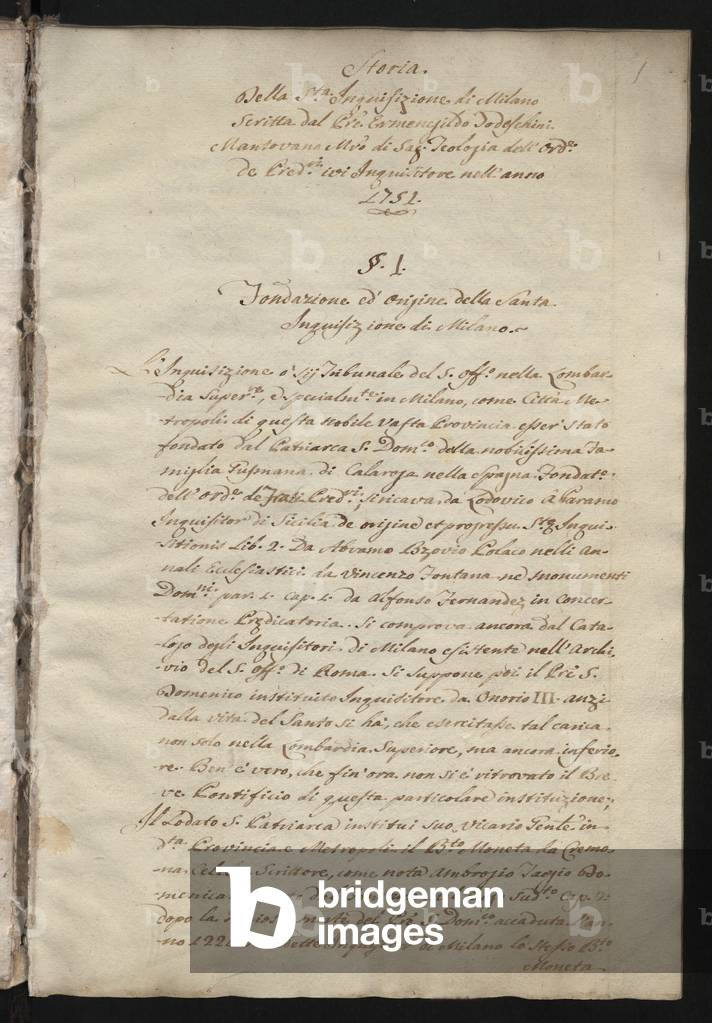 1
Storia.
Della Sta. Inquisizione di Milano
Scritta dal Pre. Ermenegildo Todeschini
Mantovano Mro di Sag. Teologia dell'Orde.
de Pred.ri ivi Inquisitore nell'anno
1751.
§. I.
Fondazione ed origine della Santa
Inquisizione di Milano.
L'Inquisizione o sij Tribunale del S. Offo. nella Lombar-
dia Super.re, e specialmte in Milano, come Città Me-
tropoli di questa nobile vasta Provincia esser stato
fondato dal Patriarca S. Domco. della nobilissima fa-
miglia Gusmana di Calaroga nella Spagna Fondate.
dell'Orde. de Frati Pred.ri, si ricava da Lodovico a Paramo
Inquisitor di Sicilia de origine et progressu Stæ Inqui-
sitionis Lib. 2. Da Abramo Bzovio Polaco nelli An-
nali Ecclesiastici da Vincenzo Fontana ne monumenti
Domni. par. 1. cap. 1. da Alfonso Fernandez in Concer-
tatione Predicatoria. Si comprova ancora dal Cata-
logo degli Inquisitori di Milano esistente nell'Archi-
vio del S. Offo. di Roma. Si suppone poi il Pre S.
Domenico instituito Inquisitore da Onorio III. anzi
dalla vita del Santo si hà, che esercitasse tal carica
non solo nella Lombardia Superiore, ma ancora inferio-
re. Ben è vero, che fin'ora non si è ritrovato il Bre-
ve Pontificio di questa particolare instituzione;
Il Lodato S. Patriarca instituì suo Vicario Gente in
dta Provincia e Metropoli il Bto Moneta da Cremo-
na Celebre Scrittore, come nota Ambrogio Taegio Do-
menica
Sudto Cap. 2:
dopo la morte del Pre S. Domco accaduta
no 122
di Milano lo stesso Bto
Moneta
b bridgeman
images